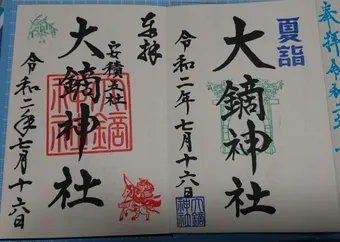 夏詣
大鏑神社
令和二年七月十六日
大鏑神社
奉拝
安積五社
大鏑神社
令和二年七月十六日
奉拝